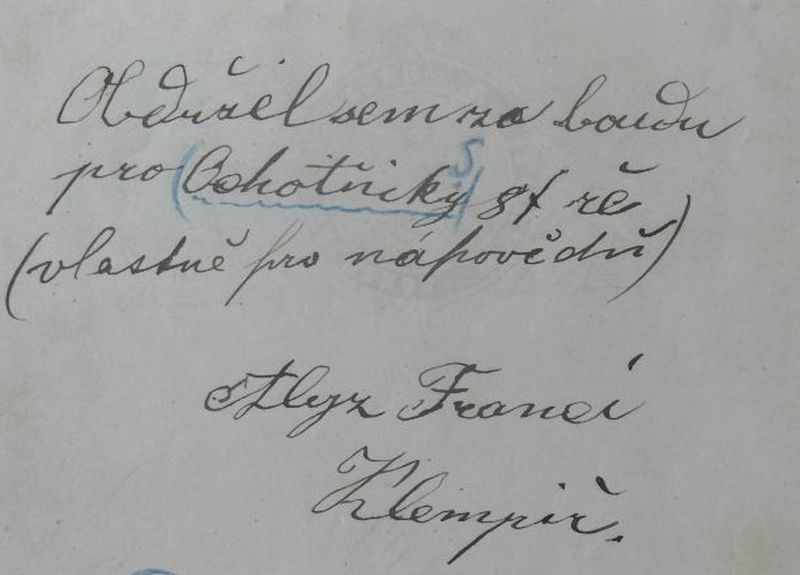 Obdržel sem za boudu
pro Ochotňický 8f rč
(vlastně pro nápovědů)
Alyz Franci
Klempíř.